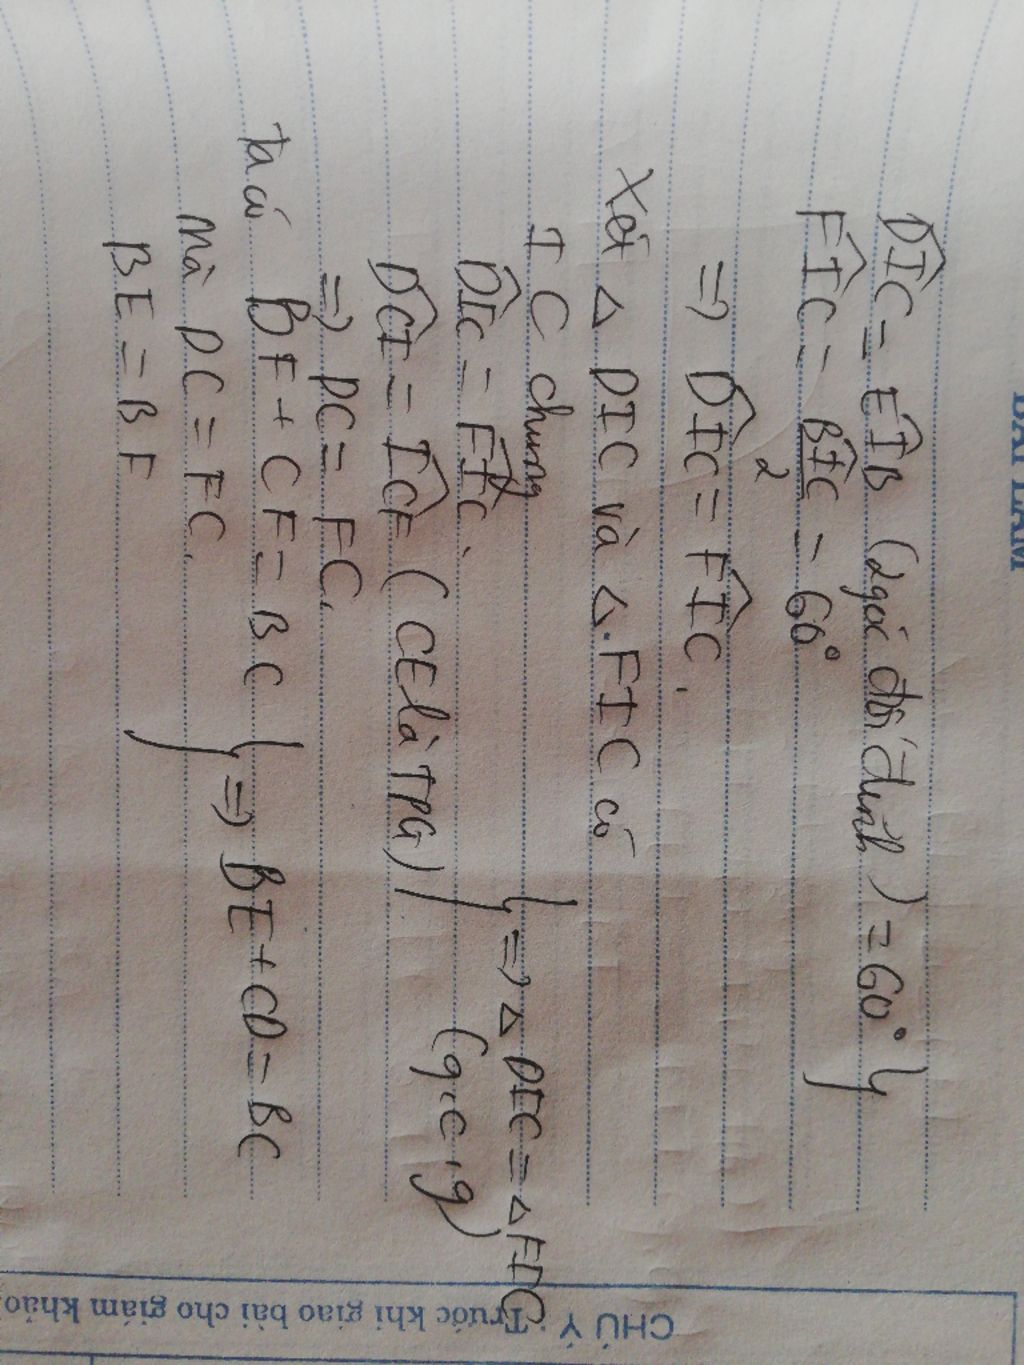 BÀI LÀM
DÎC = EÎB (2 góc đối đỉnh) = 60°
FÎC = BÎC/2 = 60°
=> DÎC = FÎC.
Xét △ DIC và △ FIC có
IC chung
DÎC = FÎC.
DĈI = IĈF (CE là TPG)
=> △ DIC = △ FIC
(g.c.g)
=> DC = FC.
Ta có BF + CF = BC
mà DC = FC.
BE = BF
=> BE + CD = BC
CHÚ Ý : Trước khi giao bài cho giám khảo